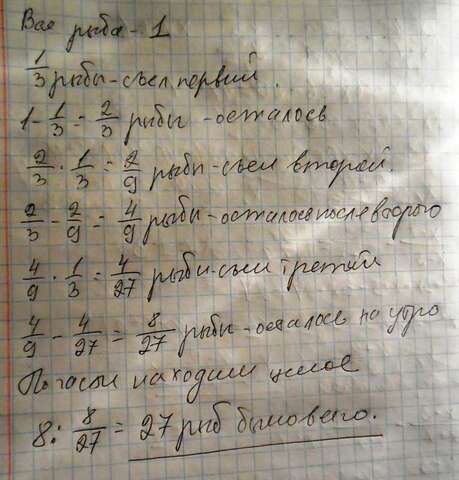 Вся рыба - 1
1/3 рыбы - съел первый.
1 - 1/3 = 2/3 рыбы - осталось
2/3 · 1/3 = 2/9 рыбы - съел второй.
2/3 - 2/9 = 4/9 рыбы - осталось после второго
4/9 · 1/3 = 4/27 рыбы - съел третий
4/9 - 4/27 = 8/27 рыбы - осталось на утро
По части находим целое
8 : 8/27 = 27 рыб было всего.